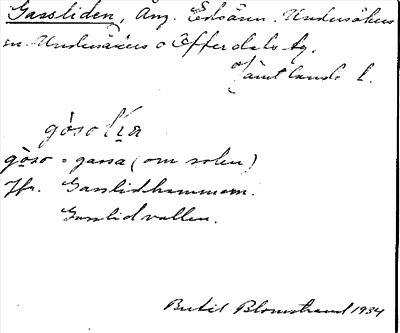 Gassliden, Äng, Edsåsen. Undersåkers
sn. Undersåkers o Offerdals tg.
Jämtlands l.
gòso lía
gòso = gassa (om solen)
Jfr. Gasslidhammaren.
Gasslidvallen.
Bertil Blomstrand 1934